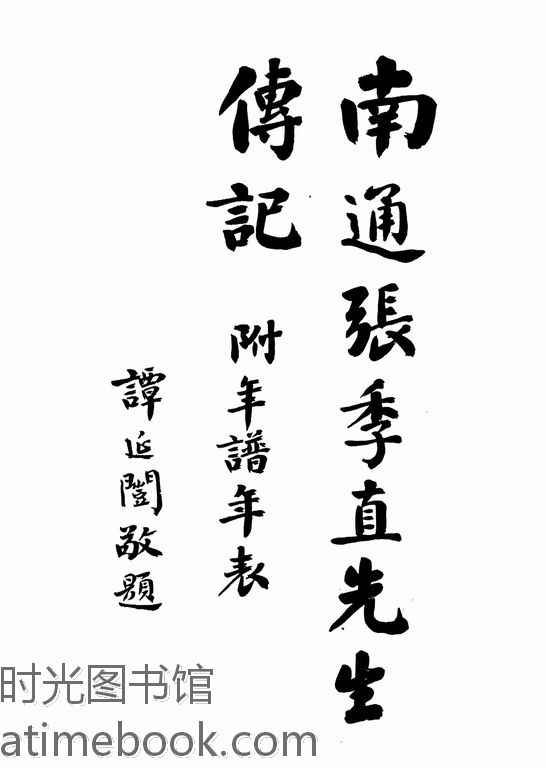 南通張季直先生
傳記 附年譜年表
譚延闓敬題
时光图书馆
atimebook.com